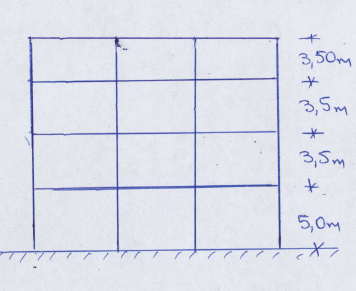 3,50m
3,5m
3,5m
5,0m